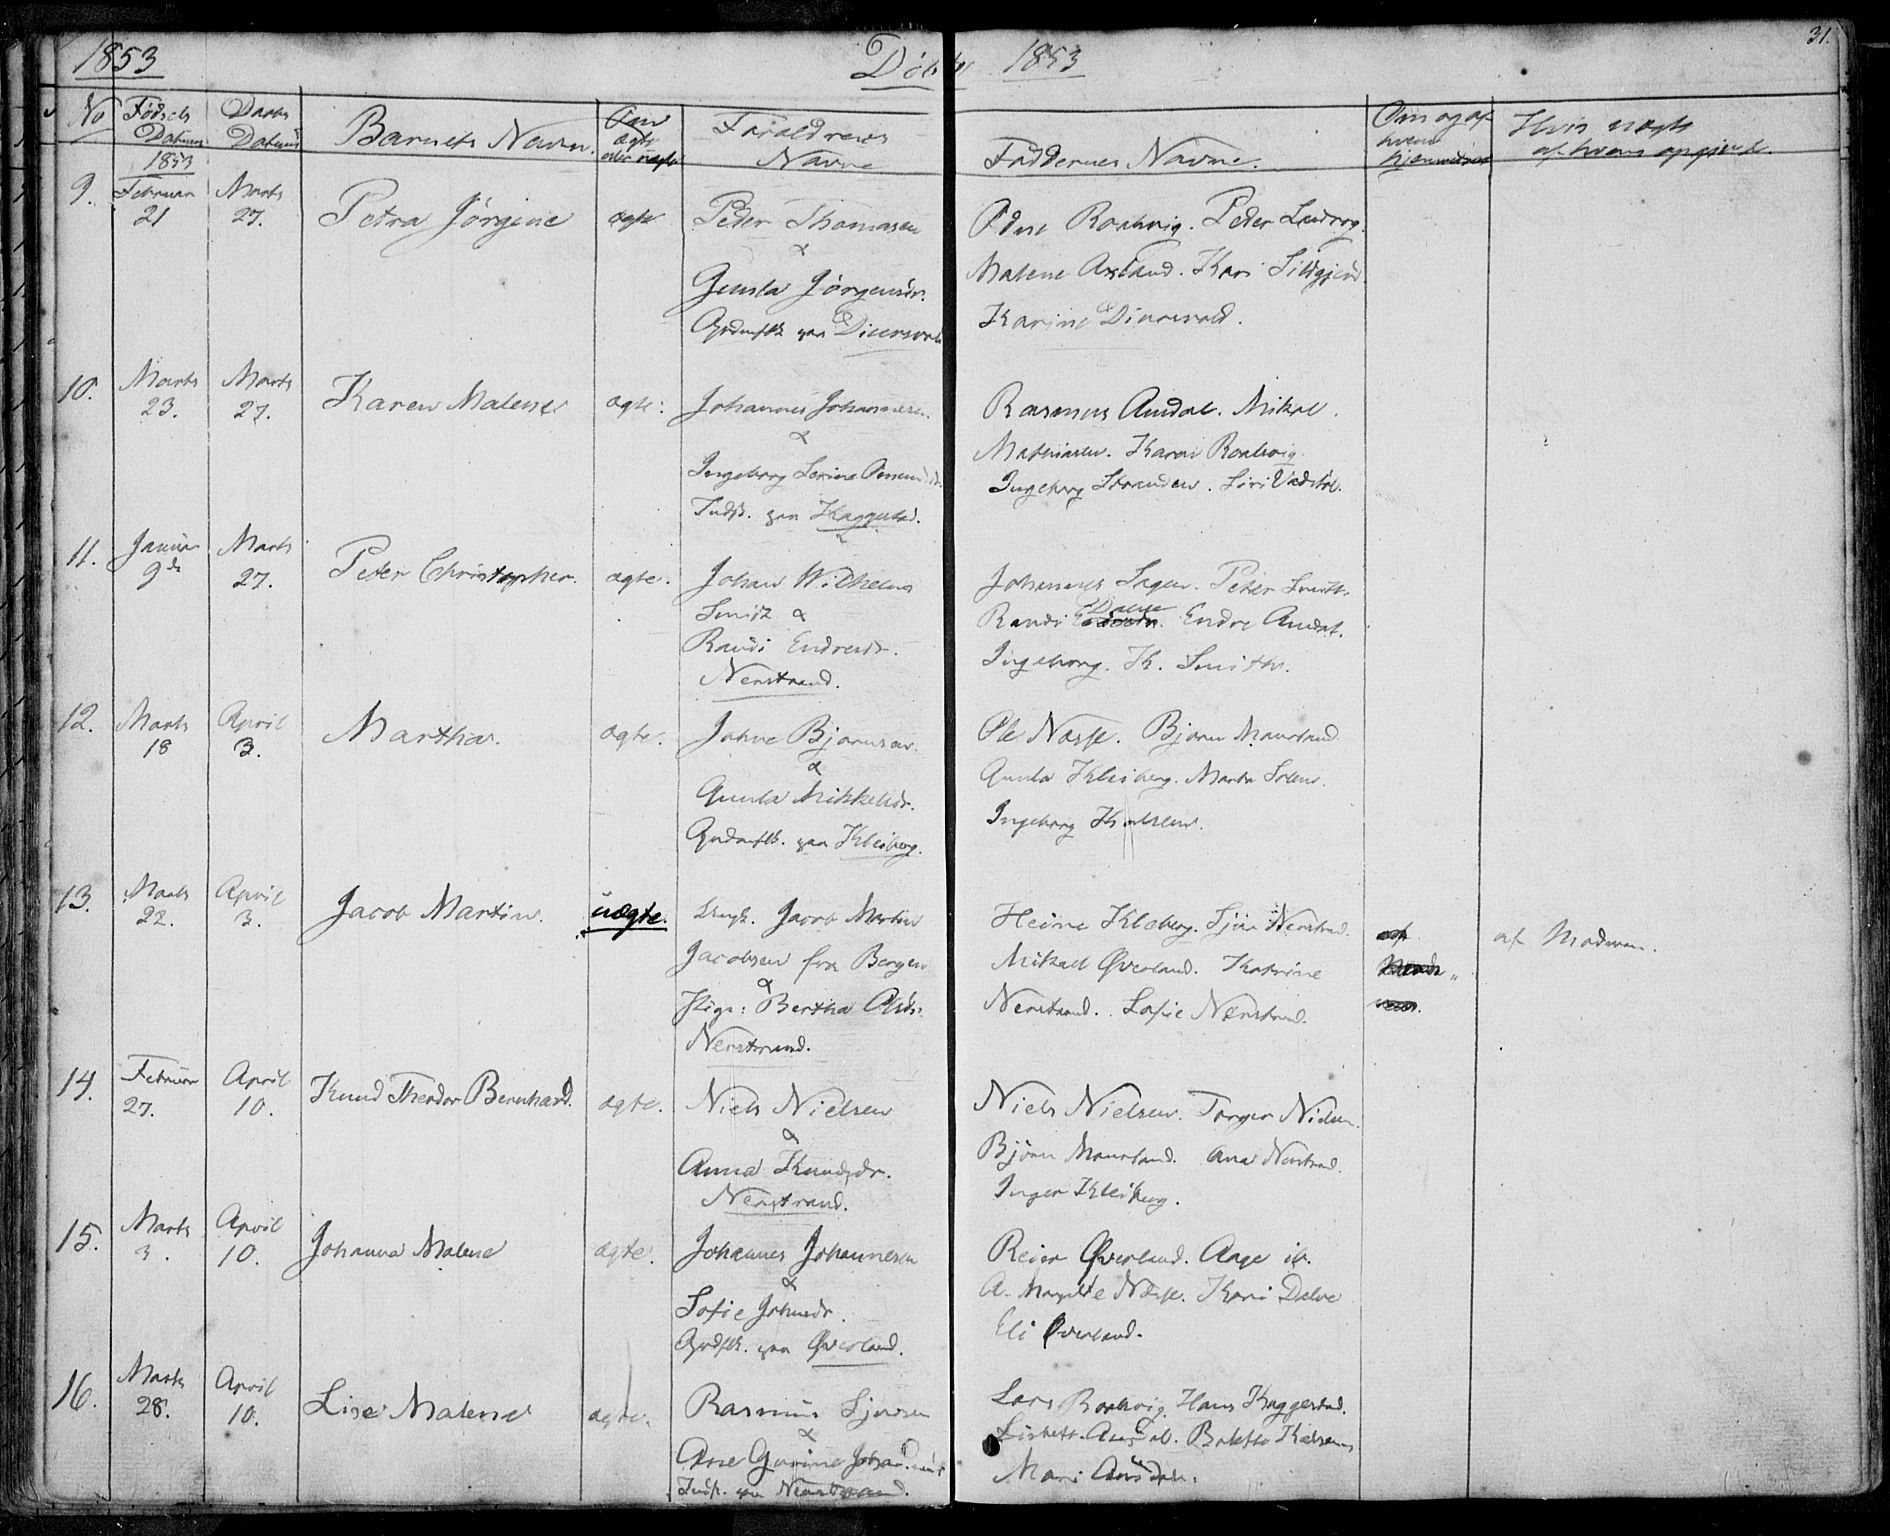 1853 Døbte 1853 31.
No Fødsels Datum Daabs Datum Barnets Navn. Om ægte eller uægte Forældrenes Navne Faddernes Navne. Om og af hvem hjemmedøbt Hvis uægte af hvem opgivet.
1853
9. Februar 21 Marts 27. Petra Jørgine ægte Peder Thomasen
&
Gunla Jørgensdr.
Grdmflk paa
Peder
Malene Kari
Karine
10. Marts 23. Marts 27. Karen Malene ægte: Johannes Johannesen.
&
Ingeborg Serine
Indst. paa Kaggestad.
Rasmus Amdal. Mikal
Mathiasen. Karen
Ingeborg Stranden. Siri
11. Januar 9de Marts 27. Peter Christopher. ægte. Johan Wilhelm
Smith &
Randi Endresdr.
Nerstrand.
Johannes Peter Smith.
Randi Dalve Endre Amdal.
Ingeborg. K. Smith.
12. Marts 18 April 3. Martha. ægte. Johne Bjørnsen.
&
Gunla Mikkelsdr.
Grdmflk. paa Kleiberg.
Ole Næsse. Bjørn Mourland.
Gunla Kleiberg. Marta
Ingeborg
13. Marts 22. April 3. Jacob Martin. uægte. Ungk. Jacob Martin
Jacobsen fra Bergen
&
Pige: Bertha Olsdr.
Nerstrand.
Heine Kleberg. Sjur Nerstrand.
Mikael Øverland. Katrine
Nerstrand. Sofie Nerstrand.
af Moderen.
14. Februar 27. April 10. Knud Theodor Bernhard. ægte. Niels Nielsen
&
Anna Knudsdr.
Nerstrand.
Niels Nielsen. Torger Nielsen.
Bjørn Mourland. Ana Nerstrand.
Inger Kleiberg.
15. Marts 3. April 10. Johanna Malene ægte. Johannes Johannesen
&
Sofie Johnsdr.
Grdflk. paa Øverland.
Reier Øverland. Aage ib.
A. Margrete Næsse. Kari Dalve
Eli Øverland.
16. Marts 28. April 10. Lise Malene ægte. Rasmus Sjursen
&
Ane Gurine
Indst. paa Nerstrand.
Lars Hans Kaggestad.
Lisbeth. Amdal.
Mari Amdal.